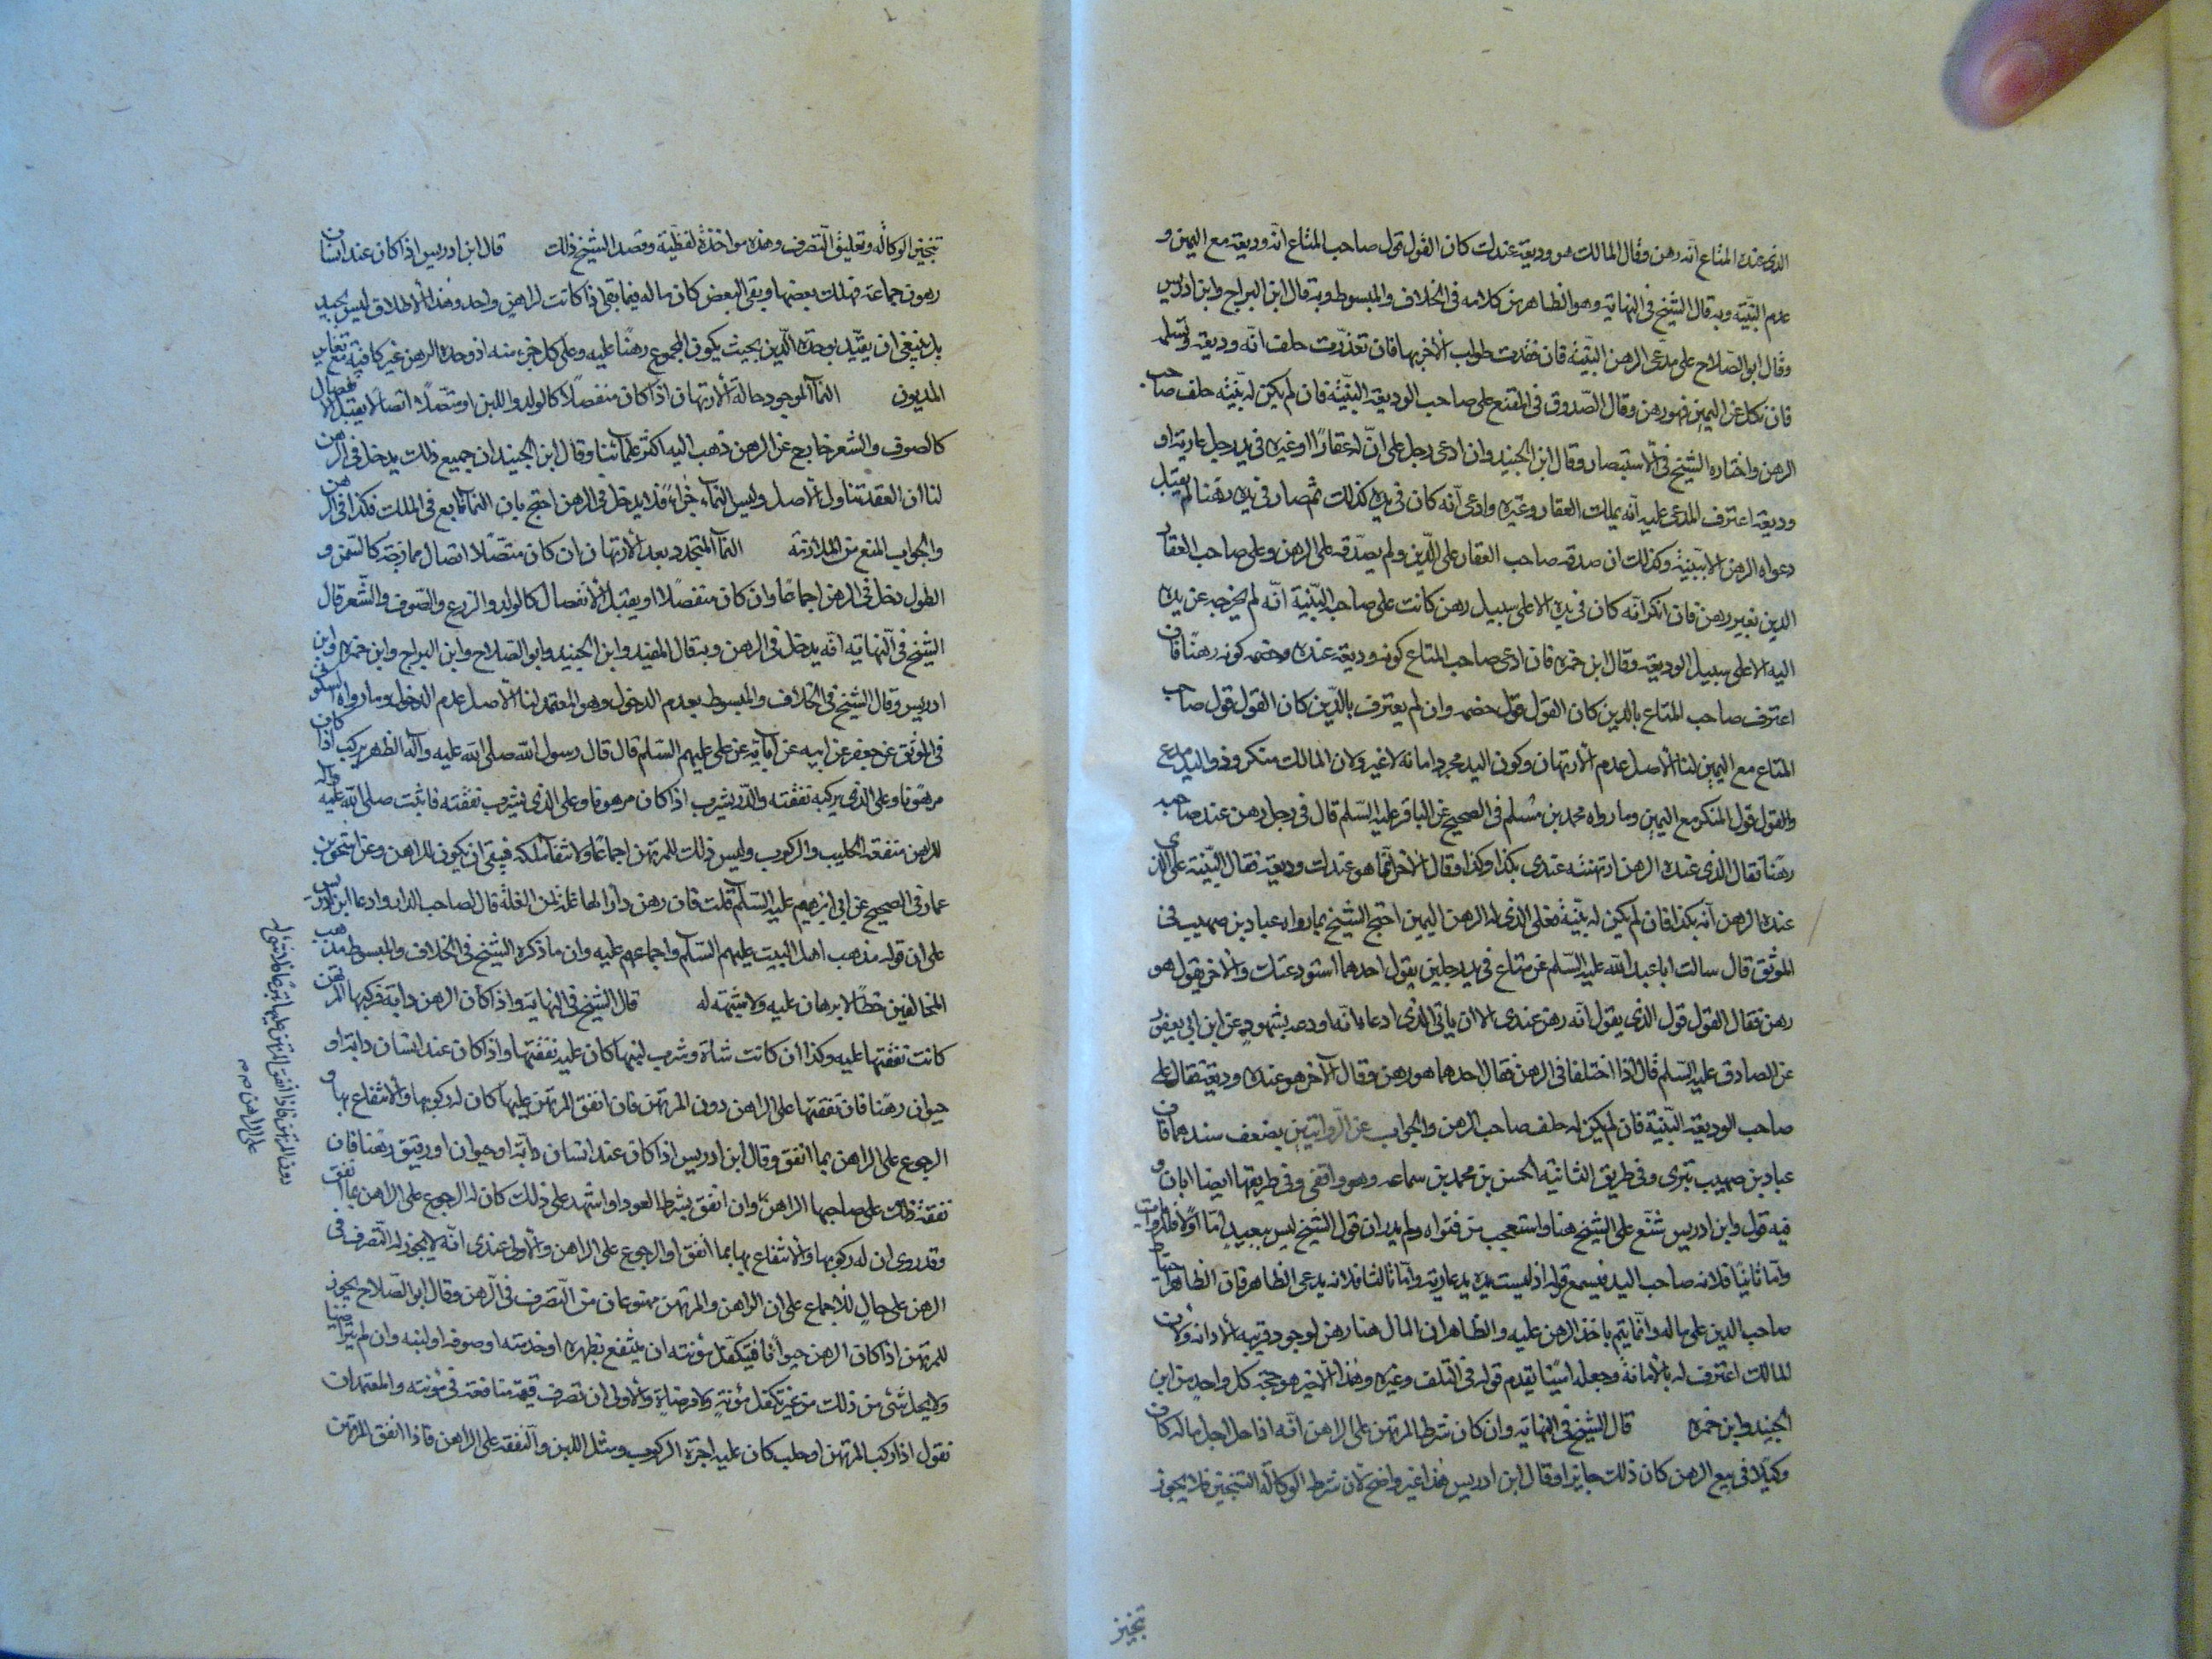 الذي عنده المتاع انه رهن وقال المالك هو وديعة عندك كان القول قول صاحب المتاع انه وديعة مع اليمين و
عدم البينة وبه قال الشيخ في النهاية وهو الظاهر من كلامه في الخلاف والمبسوط وبه قال ابن البراج وابن ادريس
وقال ابو الصلاح على مدعي الرهن البينة فان فقدت طولب الآخر بها فان تعذرت حلف انه وديعة وتسلمه
فان نكل عن اليمين فهو رهن وقال الصدوق في المقنع على صاحب الوديعة البينة فان لم يكن له بينة حلف صاحب
الرهن واختاره الشيخ في الاستبصار وقال ابن الجنيد وان ادعى رجل على ان له عقارا او غيره في يد رجل عارية او
وديعة اعترف المدعى عليه انه يملك العقار وغيره وادعى انه كان في يده كذلك ثم صار في يده رهنا لم يقبل
دعواه الرهن الا ببينة وكذلك ان صدقه صاحب العقار على الدين ولم يصدقه على الرهن وعلى صاحب العقار
الدين بغير رهن فان انكر انه كان في يده الا على سبيل رهن كانت على صاحب البينة انه لم يخرجه عن يده
اليه الا على سبيل الوديعة وقال ابن حمزه فان ادعى صاحب المتاع كونه وديعة عنده وخصمه كونه رهنا فان
اعترف صاحب المتاع بالدين كان القول قول خصمه وان لم يعترف بالدين كان القول قول صاحب
المتاع مع اليمين لنا الاصل عدم الارتهان وكون اليد مجرد امانه لا غير ولان المالك منكر وذو اليد مدع
والقول قول المنكر مع اليمين وما رواه محمد بن مسلم في الصحيح عن الباقر عليه السلم قال في رجل رهن عند صاحبه
رهنا فقال الذي عنده الرهن ارتهنته عندي بكذا وكذا وقال الآخر انما هو عندك وديعة فقال البينة على الذي
عنده الرهن انه بكذا فان لم يكن له بينة فعلى الذي له الرهن اليمين احتج الشيخ بما رواه عباد بن صهيب في
الموثق قال سالت ابا عبد الله عليه السلم عن متاع في يد رجلين يقول احدهما استودعتك والاخر يقول هو
رهن فقال القول قول الذي يقول انه رهن عندي الا ان ياتي الذي ادعاه انه اودعه بشهود وعن ابن ابي يعفور
عن الصادق عليه السلم قال اذا اختلفا في الرهن فقال احدهما هو رهن وقال الآخر هو عنده وديعة فقال على
صاحب الوديعة البينة فان لم يكن له حلف صاحب الرهن والجواب عن الروايتين بضعف سندهما فان
عباد بن صهيب بتري وفي طريق الثانية الحسن بن محمد بن سماعه وهو واقفي وفي طريقها ايضا ابان و
فيه قول وابن ادريس شنع على الشيخ هنا واستعجب من فتواه ولم يدر ان قول الشيخ ليس ببعيد اما اولا فللروايات
واما ثانيا فلانه صاحب اليد فيسمع قوله اذ ليست يده يد عارية واما ثالثا فلانه يدعي الظاهر فان الظاهر احتياط
صاحب الدين على ماله وانما يتم باخذ الرهن عليه والظاهر ان المال هنا رهن لوجود قرينة الادانة ولان
المالك اعترف له بالامانة وجعله امينا يقدم قوله في التلف وغيره وهذا الاخير هو حجة كل واحد من ابن
الجنيد وابن حمزه قال الشيخ في النهاية وان كان شرط المرتهن على الراهن انه اذا حل اجل ماله كان
وكيلا في بيع الرهن كان ذلك جايزا وقال ابن ادريس هذا غير واضح لان شرط الوكالة التنجيز فلا يجوز
تنجيز
تنجيز الوكالة وتعليق التصرف وهذه مواخذة لفظية وقصد الشيخ ذلك قال ابن ادريس اذا كان عند انسان
رهون جماعة فهلك بعضها وبقي البعض كان ماله فيما بقي اذا كانت لراهن واحد وهذا الاطلاق ليس بجيد
بل ينبغي ان يقيد بوحدة الدين بحيث يكون المجموع رهنا عليه وعلى كل جزء منه اذ وحدة الراهن غير كافية مع تغاير
المديون النماء الموجود حالة الارتهان اذا كان منفصلا كالولد واللبن او متصلا اتصالا يقبل الانفصال
كالصوف والشعر خارج عن الرهن ذهب اليه اكثر علمائنا وقال ابن الجنيد ان جميع ذلك يدخل في الرهن
لنا ان العقد تناول الاصل وليس النماء جزاء فلا يدخل في الرهن احتج بان النماء تابع في الملك فكذا في الرهن
والجواب المنع من الملازمة النماء المتجدد بعد الارتهان ان كان متصلا اتصال ممازجة كالسمن و
الطول دخل في الرهن اجماعا وان كان منفصلا او يقبل الانفصال كالولد والزرع والصوف والشعر قال
الشيخ في النهاية انه يدخل في الرهن وبه قال المفيد وابن الجنيد وابو الصلاح وابن البراج وابن حمزه وابن
ادريس وقال الشيخ في الخلاف والمبسوط بعدم الدخول وهو المعتمد لنا الاصل عدم الدخول وما رواه السكوني
في الموثق عن جعفر عن ابيه عن آبائه عن علي عليهم السلم قال قال رسول الله صلى الله عليه وآله الظهر يركب اذا كان
مرهونا وعلى الذي يركبه نفقته والدر يشرب اذا كان مرهونا وعلى الذي يشرب نفقته فاثبت صلى الله عليه وآله
للرهن منفقة الحليب والركوب وليس ذلك للمرتهن اجماعا ولانتفاء ملكه فبقي ان يكون للراهن وعن اسحق بن
عمار في الصحيح عن ابي ابرهيم عليه السلام قلت فان رهن دارا لها غلة لمن الغلة قال لصاحب الدار وادعا ابن ادريس
على ان قوله مذهب اهل البيت عليهم السلم واجماعهم عليه وان ما ذكره الشيخ في الخلاف والمبسوط مذهب
المخالفين خطأ لا برهان عليه ولا شبهة له قال الشيخ في النهاية واذا كان الرهن دابة فركبها المرتهن
كانت نفقتها عليه وكذا ان كانت شاة وشرب لبنها كان عليه نفقتها واذا كان عند انسان دابة او
حيوان رهنا فان نفقتها على الراهن دون المرتهن فان انفق المرتهن عليها كان له ركوبها والانتفاع بها و
الرجوع على الراهن بما انفق وقال ابن ادريس اذا كان عند انسان دابة او حيوان او رقيق رهنا فان
نفقة ذلك على صاحبها الراهن وان انفق بشرط العود او اشهد على ذلك كان له الرجوع على الراهن بما انفق
وقد روي ان له ركوبها والانتفاع بها بما انفق او الرجوع على الراهن والاولى عندي انه لا يجوز له التصرف في
الرهن على حال للاجماع على ان الراهن والمرتهن ممنوعان من التصرف في الرهن وقال ابو الصلاح يجوز
للمرتهن اذا كان الرهن حيوانا فيتكفل مؤنته ان ينتفع بظهره او خدمته او صوفه او لبنه وان لم يتراضيا
ولا يحل شئ من ذلك من غير تكفل مؤنة ولا مرضاة والاولى ان تصرف قيمة منافعه في مؤنته والمعتمد ان
نقول اذا ركب المرتهن او حلب كان عليه اجرة الركوب ومثل اللبن والنفقة على الراهن فاذا انفق المرتهن
على الراهن م م